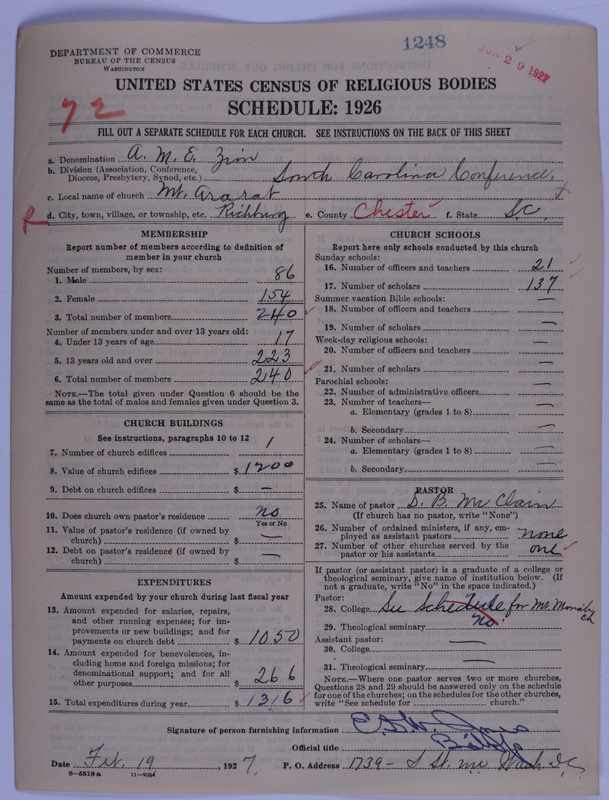 1248
JUN 29 1927
DEPARTMENT OF COMMERCE
BUREAU OF THE CENSUS
WASHINGTON
UNITED STATES CENSUS OF RELIGIOUS BODIES
72
SCHEDULE: 1926
FILL OUT A SEPARATE SCHEDULE FOR EACH CHURCH. SEE INSTRUCTIONS ON THE BACK OF THIS SHEET
a. Denomination A. M. E. Zion
b. Division (Association, Conference, Diocese, Presbytery, Synod, etc.) South Carolina Conference
c. Local name of church Mt. Ararat
R d. City, town, village, or township, etc. Richburg e. County Chester f. State S.C.
MEMBERSHIP
Report number of members according to definition of
member in your church
Number of members, by sex:
1. Male 86
2. Female 154
3. Total number of members 240
Number of members under and over 13 years old:
4. Under 13 years of age 17
5. 13 years old and over 223
6. Total number of members 240
NOTE.—The total given under Question 6 should be
same as the total of males and females given under Question 3.
CHURCH BUILDINGS
See instructions, paragraphs 10 to 12
7. Number of church edifices 1
8. Value of church edifices $ 1200
9. Debt on church edifices $ —
10. Does church own pastor's residence No
Yes or No
11. Value of pastor's residence (if owned by
church) $ —
12. Debt on pastor's residence (if owned by
church) $ —
EXPENDITURES
Amount expended by your church during last fiscal year
13. Amount expended for salaries, repairs,
and other running expenses; for im-
provements or new buildings; and for
payments on church debt $ 1050
14. Amount expended for benevolences, in-
cluding home and foreign missions; for
denominational support; and for all
other purposes $ 266
15. Total expenditures during year $ 1316
CHURCH SCHOOLS
Report here only schools conducted by this church
Sunday schools:
16. Number of officers and teachers 21
17. Number of scholars 137
Summer vacation Bible schools: —
18. Number of officers and teachers
19. Number of scholars —
Week-day religious schools:
20. Number of officers and teachers —
21. Number of scholars —
Parochial schools:
22. Number of administrative officers —
23. Number of teachers—
a. Elementary (grades 1 to 8) —
b. Secondary —
24. Number of scholars—
a. Elementary (grades 1 to 8) —
b. Secondary —
PASTOR
25. Name of pastor D. B. McClain
(If church has no pastor, write "None")
26. Number of ordained ministers, if any, em-
ployed as assistant pastors none
27. Number of other churches served by the
pastor or his assistants one
If pastor (or assistant pastor) is a graduate of a college or
theological seminary, give name of institution below. (If
not a graduate, write "No" in the space indicated.)
Pastor:
28. College See Schedule for Mt. ch
29. Theological seminary No
Assistant pastor: —
30. College
31. Theological seminary —
NOTE.—Where one pastor serves two or more churches,
Questions 28 and 29 should be answered only on the schedule
for one of the churches; on the schedules for the other churches,
write "See schedule for church."
Signature of person furnishing information
Official title Bishop
Date Feb. 19 1927 P. O. Address 1739 - S St. NW Wash. D.C.
8-5518 a 11-9054